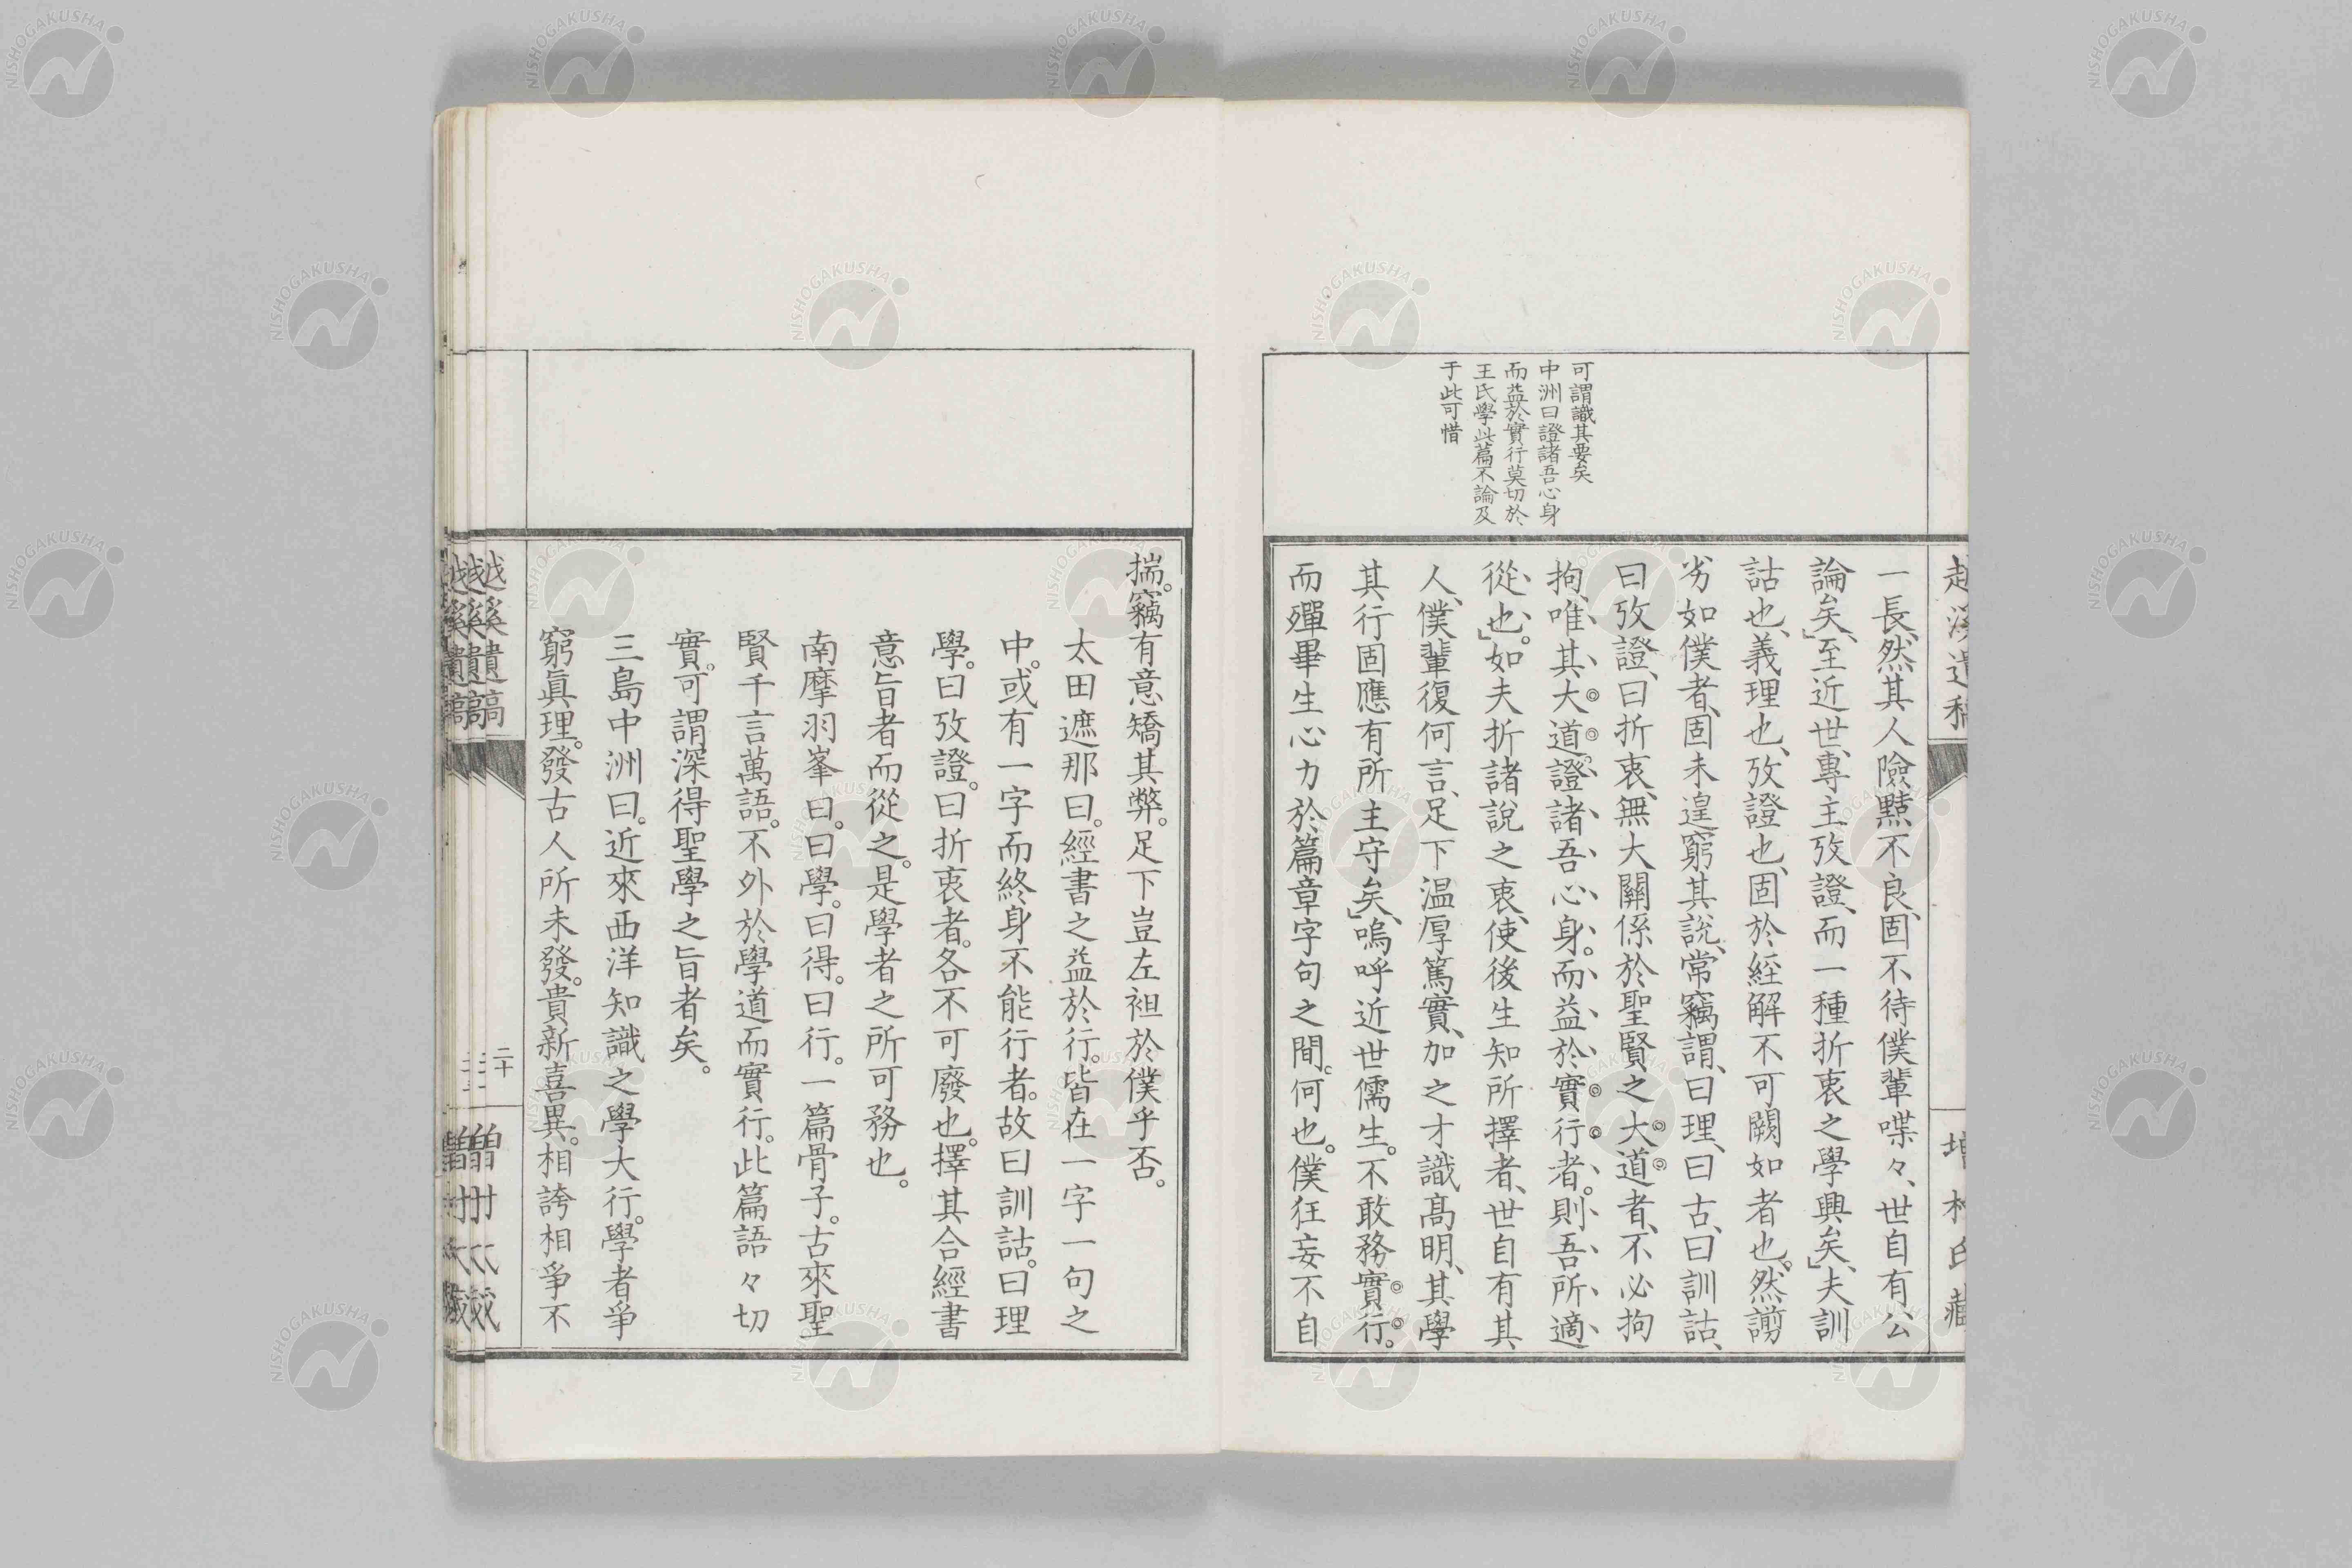 可謂識其要矣
中洲曰證諸吾心身
而益於實行莫切於
王氏學此篇不論及
于此可惜
一長、然其人險黠不良、固不待僕輩喋々、世自有公
論矣、」至近世、專主攷證、而一種折衷之學興矣、」夫訓
詁也、義理也、攷證也、固於經解不可闕如者也。然謭
劣如僕者、固未遑窮其說、常竊謂、曰理、曰古、曰訓詁、
曰攷證、曰折衷、無大關係於聖賢之大道者、不必拘
拘、唯其大道。證諸吾心身。而益於實行者。則吾所適
從也。」如夫折諸說之衷、使後生知所擇者、世自有其
人、僕輩復何言、足下温厚篤實、加之才識高明、其學
其行固應有所主守矣、」嗚呼近世儒生。不敢務實行。
而殫畢生心力於篇章字句之間。何也。僕狂妄不自
揣。竊有意矯其弊。足下豈左袒於僕乎否。
太田遮那曰。經書之益於行。皆在一字一句之
中。或有一字而終身不能行者。故曰訓詁。曰理
學。曰攷證。曰折衷者。各不可廢也。擇其合經書
意旨者而從之。是學者之所可務也。
南摩羽峯曰。曰學。曰得。曰行。一篇骨子。古來聖
賢千言萬語。不外於學道而實行。此篇語々切
實。可謂深得聖學之旨者矣。
三島中洲曰。近來西洋知識之學大行。學者爭
窮眞理。發古人所未發。貴新喜異。相誇相爭不
越溪遺稿
二十